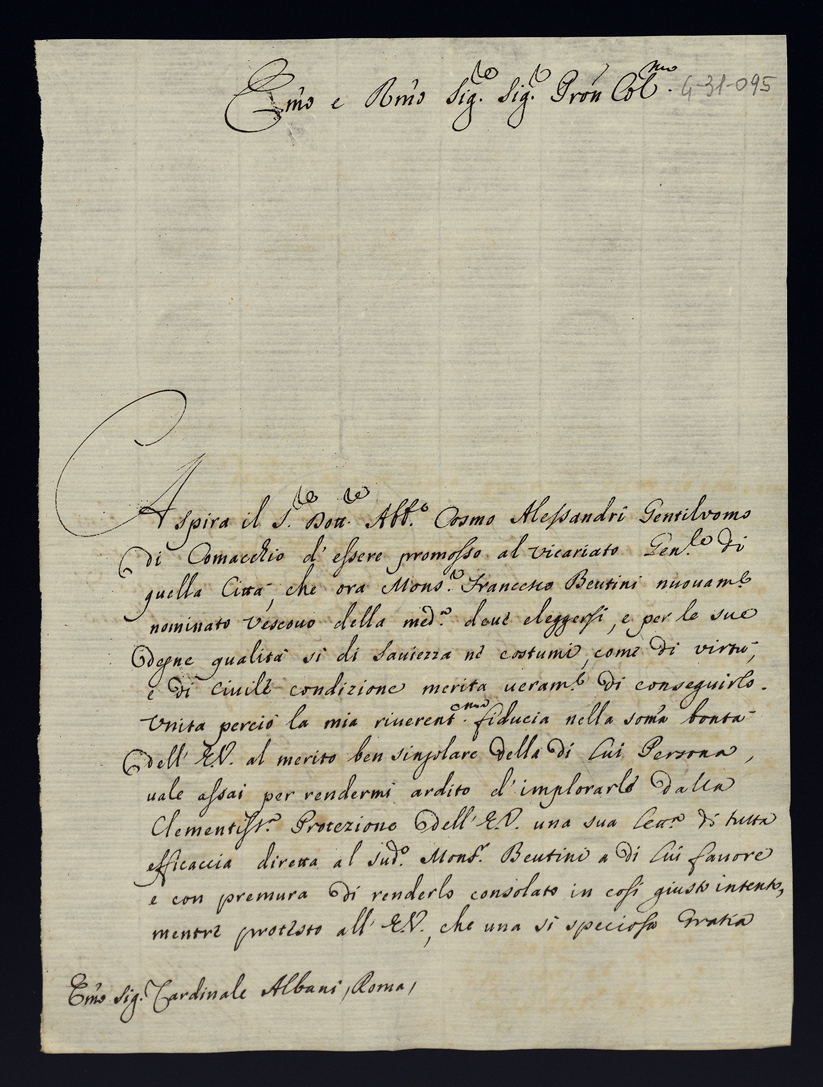 Em̃o e Rm̃o Sig.re Sig.r Pron̄ Col.mo
4-31-095
Aspira il S.re Dott.re Abb.e Cosmo Alessandri Gentilvomo
di Comacchio d'essere promosso al Vicariato Gen.le di
quella Cittá, che ora Mons.r Francesco Bentini nuovam.e
nominato Vescovo della med.a deve eleggersi, e per le sue
degne qualitá si di Saviezza ne costumi, come di virtú,
e di Civile condizione merita veram.e di conseguirlo.
Vnita perció la mia riverent.ma fiducia nella som̃a bontá
dell'E.V. al merito ben singolare della di lui Persona,
vale assai per rendermi ardito d'implorarle dalla
Clementiss.a Protezione dell'E.V. una sua lett.a di tutta
efficacia diretta al sud.o Mons.r Bentini a di lui favore
e con premura di renderlo consolato in cosi giusto intento,
mentre protesto all'E.V., che una si speciosa Gratia
Em̃o Sig.r Cardinale Albani, Roma,